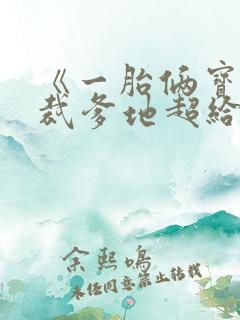 《一胎俩宝
裁爹地超给
余熙鸣
未经同意禁止转载